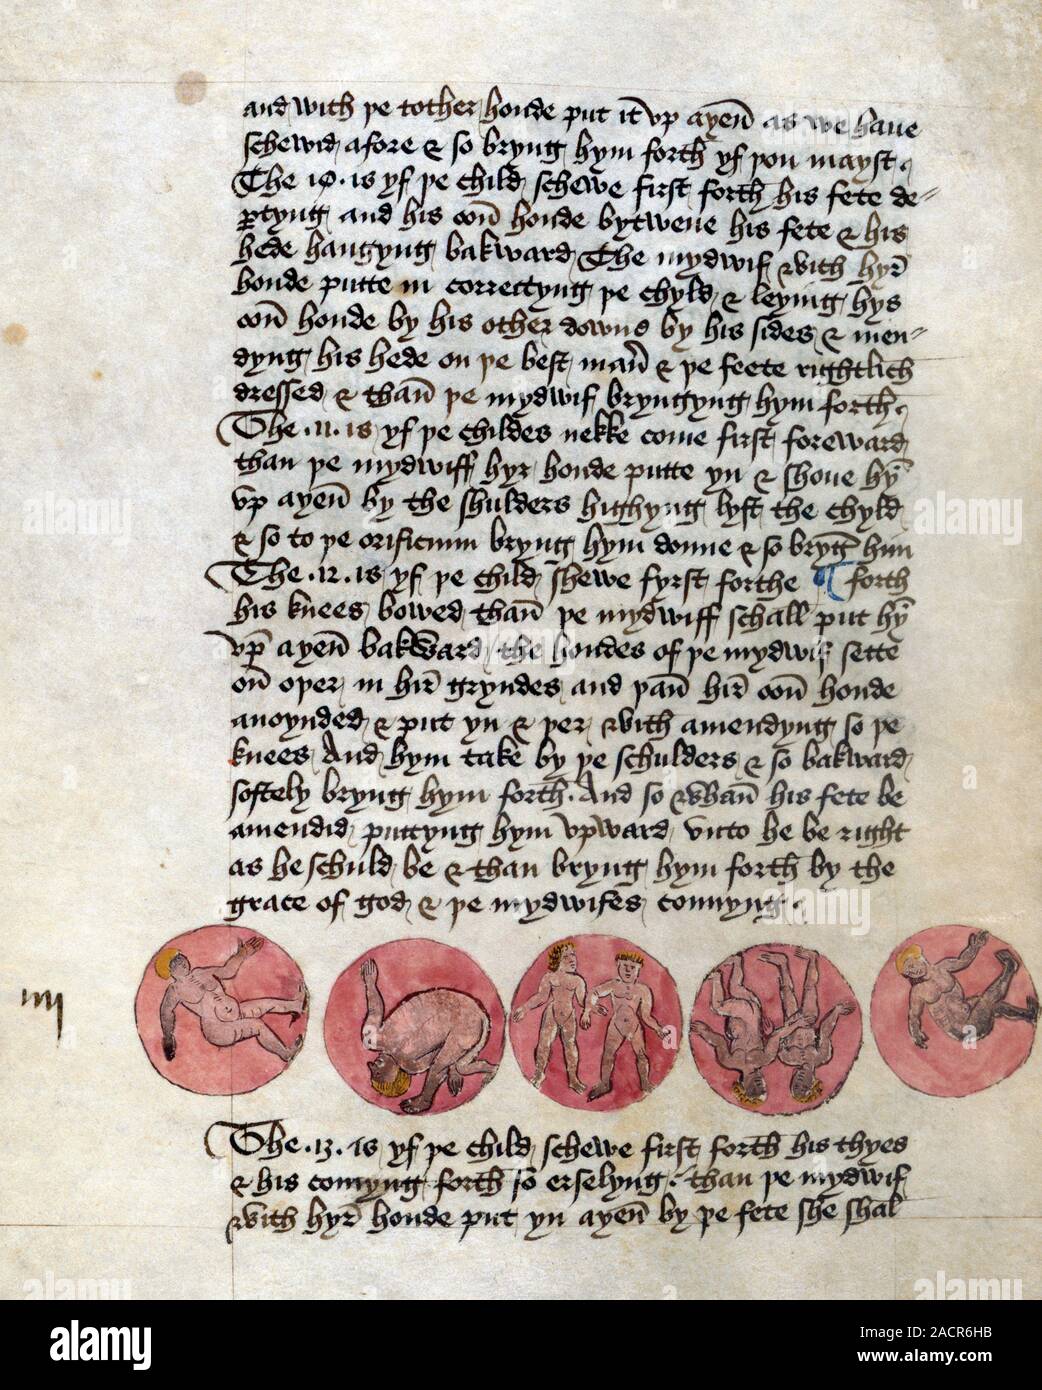 and with þe tother honde put it vp ayen̄ as we haue
schewid afore & so bryng hym forth yf þou mayst
The 10 · is yf þe child schewe first forth his fete de=
ꝑtyng and his oon̄ honde bytwene his fete & his
hede hangyng bakward The mydwif with hyr̄
honde putte in correctyng þe chyld & leying hys
oon̄ honde by his other downe by his sides & men=
dyng his hede on þe best man̄ & þe feete rightlich
dressed & than̄ þe mydwif bryngyng hym forth
The · 11 · is yf þe childes nekke come first foreward
than þe mydwiff hyr honde putte yn & shoue hȳ
vp ayen̄ by the shulders highyng lyft the chyld
& so to þe orificium bryng hym doune & so bryḡ him
The · 12 · is yf þe child shewe fyrst forthe ¶ forth
his knees bowed than̄ þe mydwiff schall put hȳ
vp ayen̄ bakward the hondes of þe mydwif sette
on̄ oþer in hir̄ gryndes and þan̄ hir̄ oon̄ honde
anoynded & put yn & þer with amendyng so þe
knees And hym take by þe schulders & so bakward
softely bryng hym forth · And so whan̄ his fete be
amendid puttyng hym vpward vnto he be right
as he schuld be & than bryng hym forth by the
grace of god & þe mydwifes connyng ·
iiij
The · 13 · is yf þe child schewe first forth his thyes
& his comyng forth so erselyng · than þe mydwif
with hyr̄ honde put yn ayen̄ by þe fete she shal
alamy
Image ID: 2ACR6HB
www.alamy.com